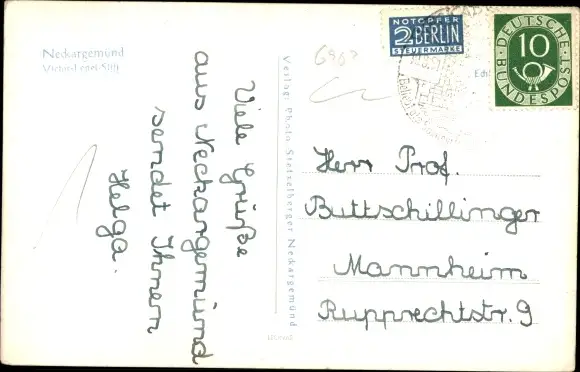 Neckargemünd
Viele Grüße
aus Neckargemünd
sendet Ihnen
Helga.
Verlag: Photo Stetzelberger Neckargemünd
NOTOPFER
2 BERLIN
STEUERMARKE
DEUTSCHE
BUNDESPOST
10
Herr Prof.
Buttschillinger
Mannheim
Rupprechtstr. 9